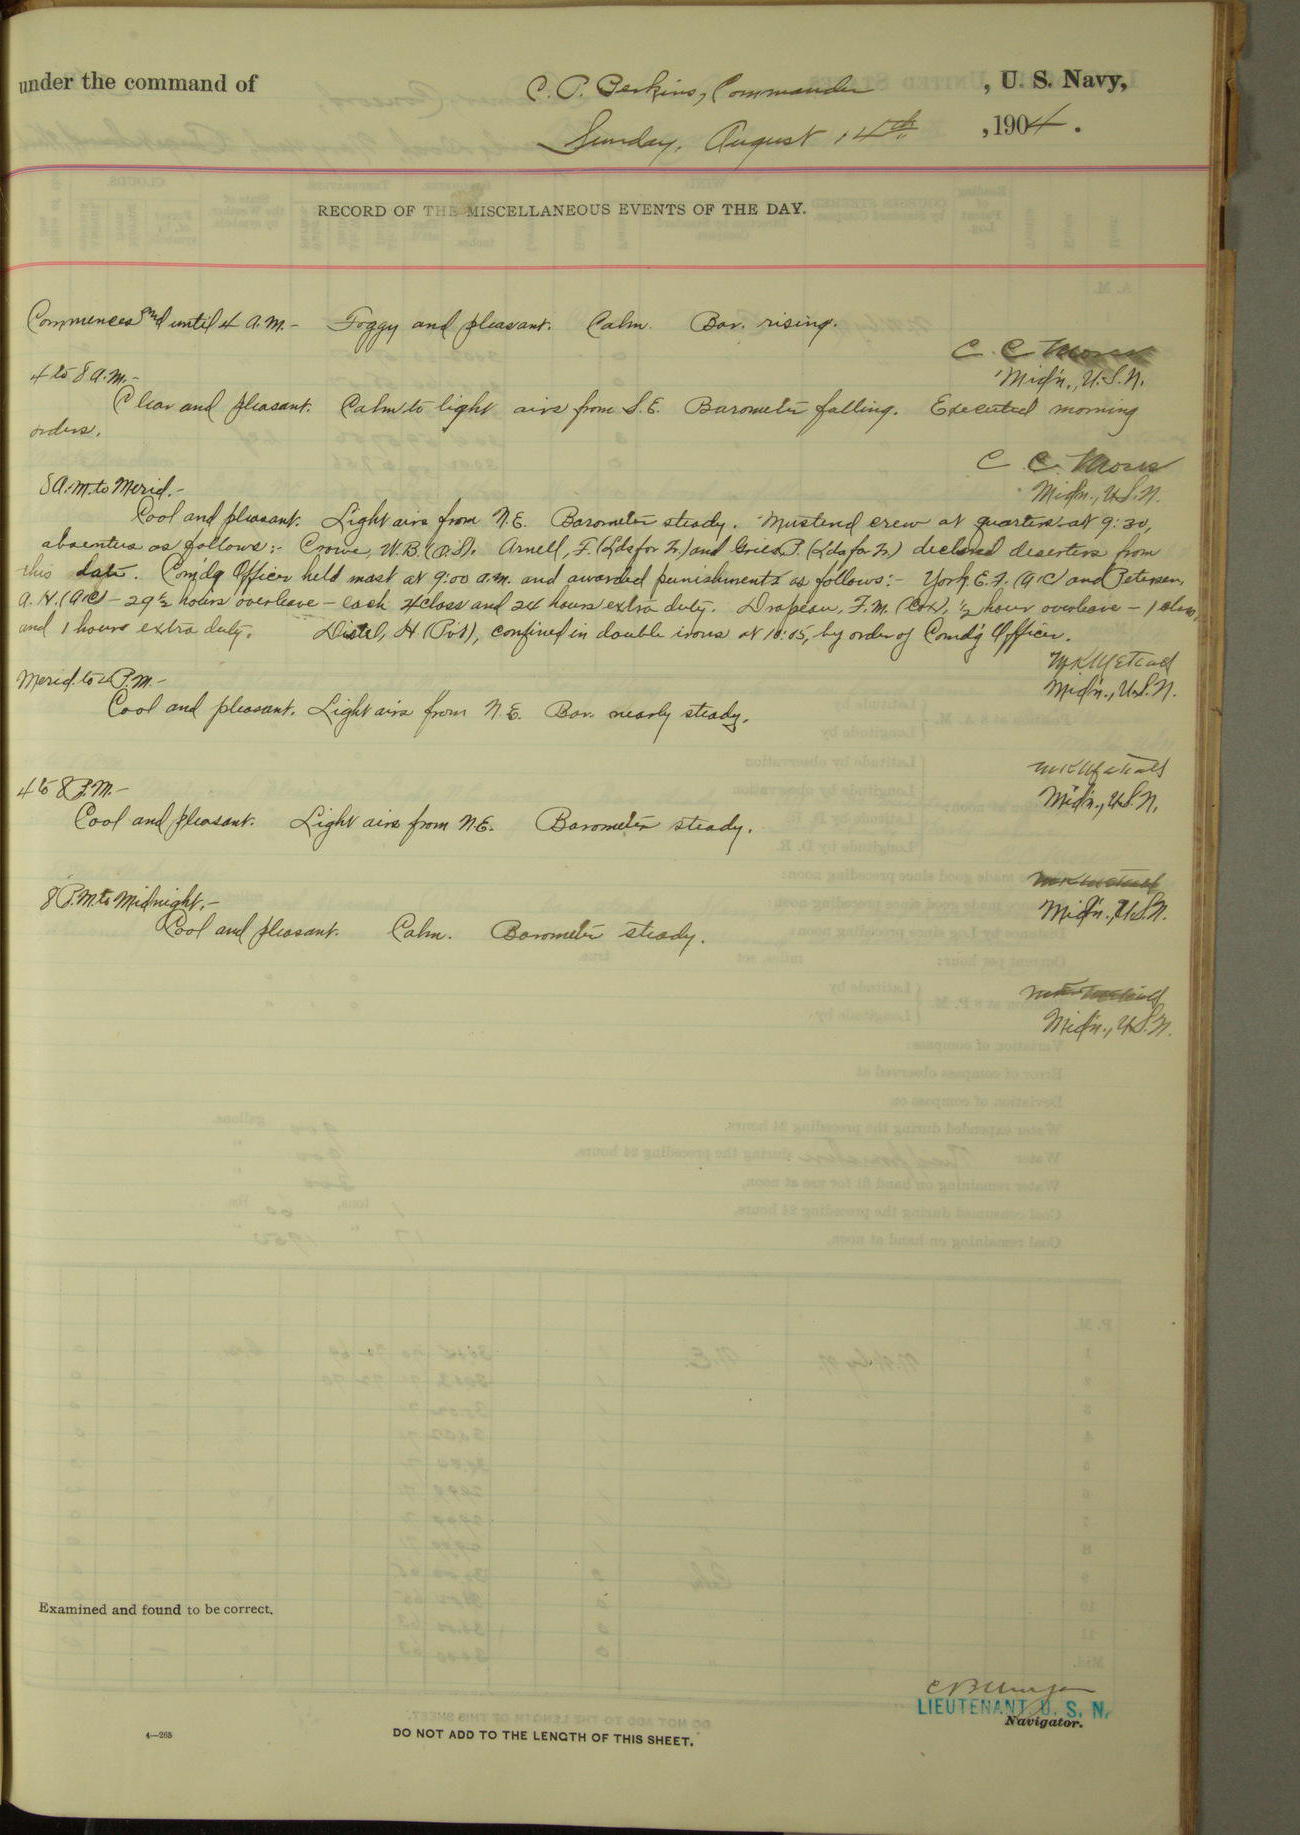 under the command of C. P. Perkins, Commander, U. S. Navy,
Sunday, August 14th, 1904.
RECORD OF THE MISCELLANEOUS EVENTS OF THE DAY.
Commences and until 4 A.M.- Foggy and pleasant. Calm. Bar. rising.
C. C. Moses
Mid'n., U.S.N.
4 to 8 A.M.-
Clear and pleasant. Calm to light airs from S.E. Barometer falling. Executed morning
orders.
C. C. Moses
Mid'n., U.S.N.
8 A.M. to Merid.-
Cool and pleasant. Light airs from N.E. Barometer steady. Mustered crew at quarters at 9:30,
absentees as follows:- Crowe, W.B. Arnell, F. (Lds for Tr.) and Gries, P. (Lds for Tr.) declared deserters from
this date. Com'dg Officer held mast at 9:00 a.m. and awarded punishments as follows:- York E.F. (A.C) and Petersen,
A. H. (A.C) - 29 1/2 hours overleave - each 4 class and 24 hours extra duty. Drapeau, F.M. (Cox), 1/2 hour overleave - 1 class,
and 1 hours extra duty. Distel, H (Pvt), confined in double irons at 10:05, by order of Com'd'g Officer.
M K Metcalf
Mid'n., U.S.N.
Merid. to 4 P.M.-
Cool and pleasant. Light airs from N.E. Bar. nearly steady.
M K Metcalf
Mid'n., U.S.N.
4 to 8 P.M.-
Cool and pleasant. Light airs from N.E. Barometer steady.
M K Metcalf
Mid'n., U.S.N.
8 P.M. to Midnight.-
Cool and pleasant. Calm. Barometer steady.
M K Metcalf
Mid'n., U.S.N.
Examined and found to be correct.
LIEUTENANT U. S. N.
Navigator.
4—268
DO NOT ADD TO THE LENGTH OF THIS SHEET.